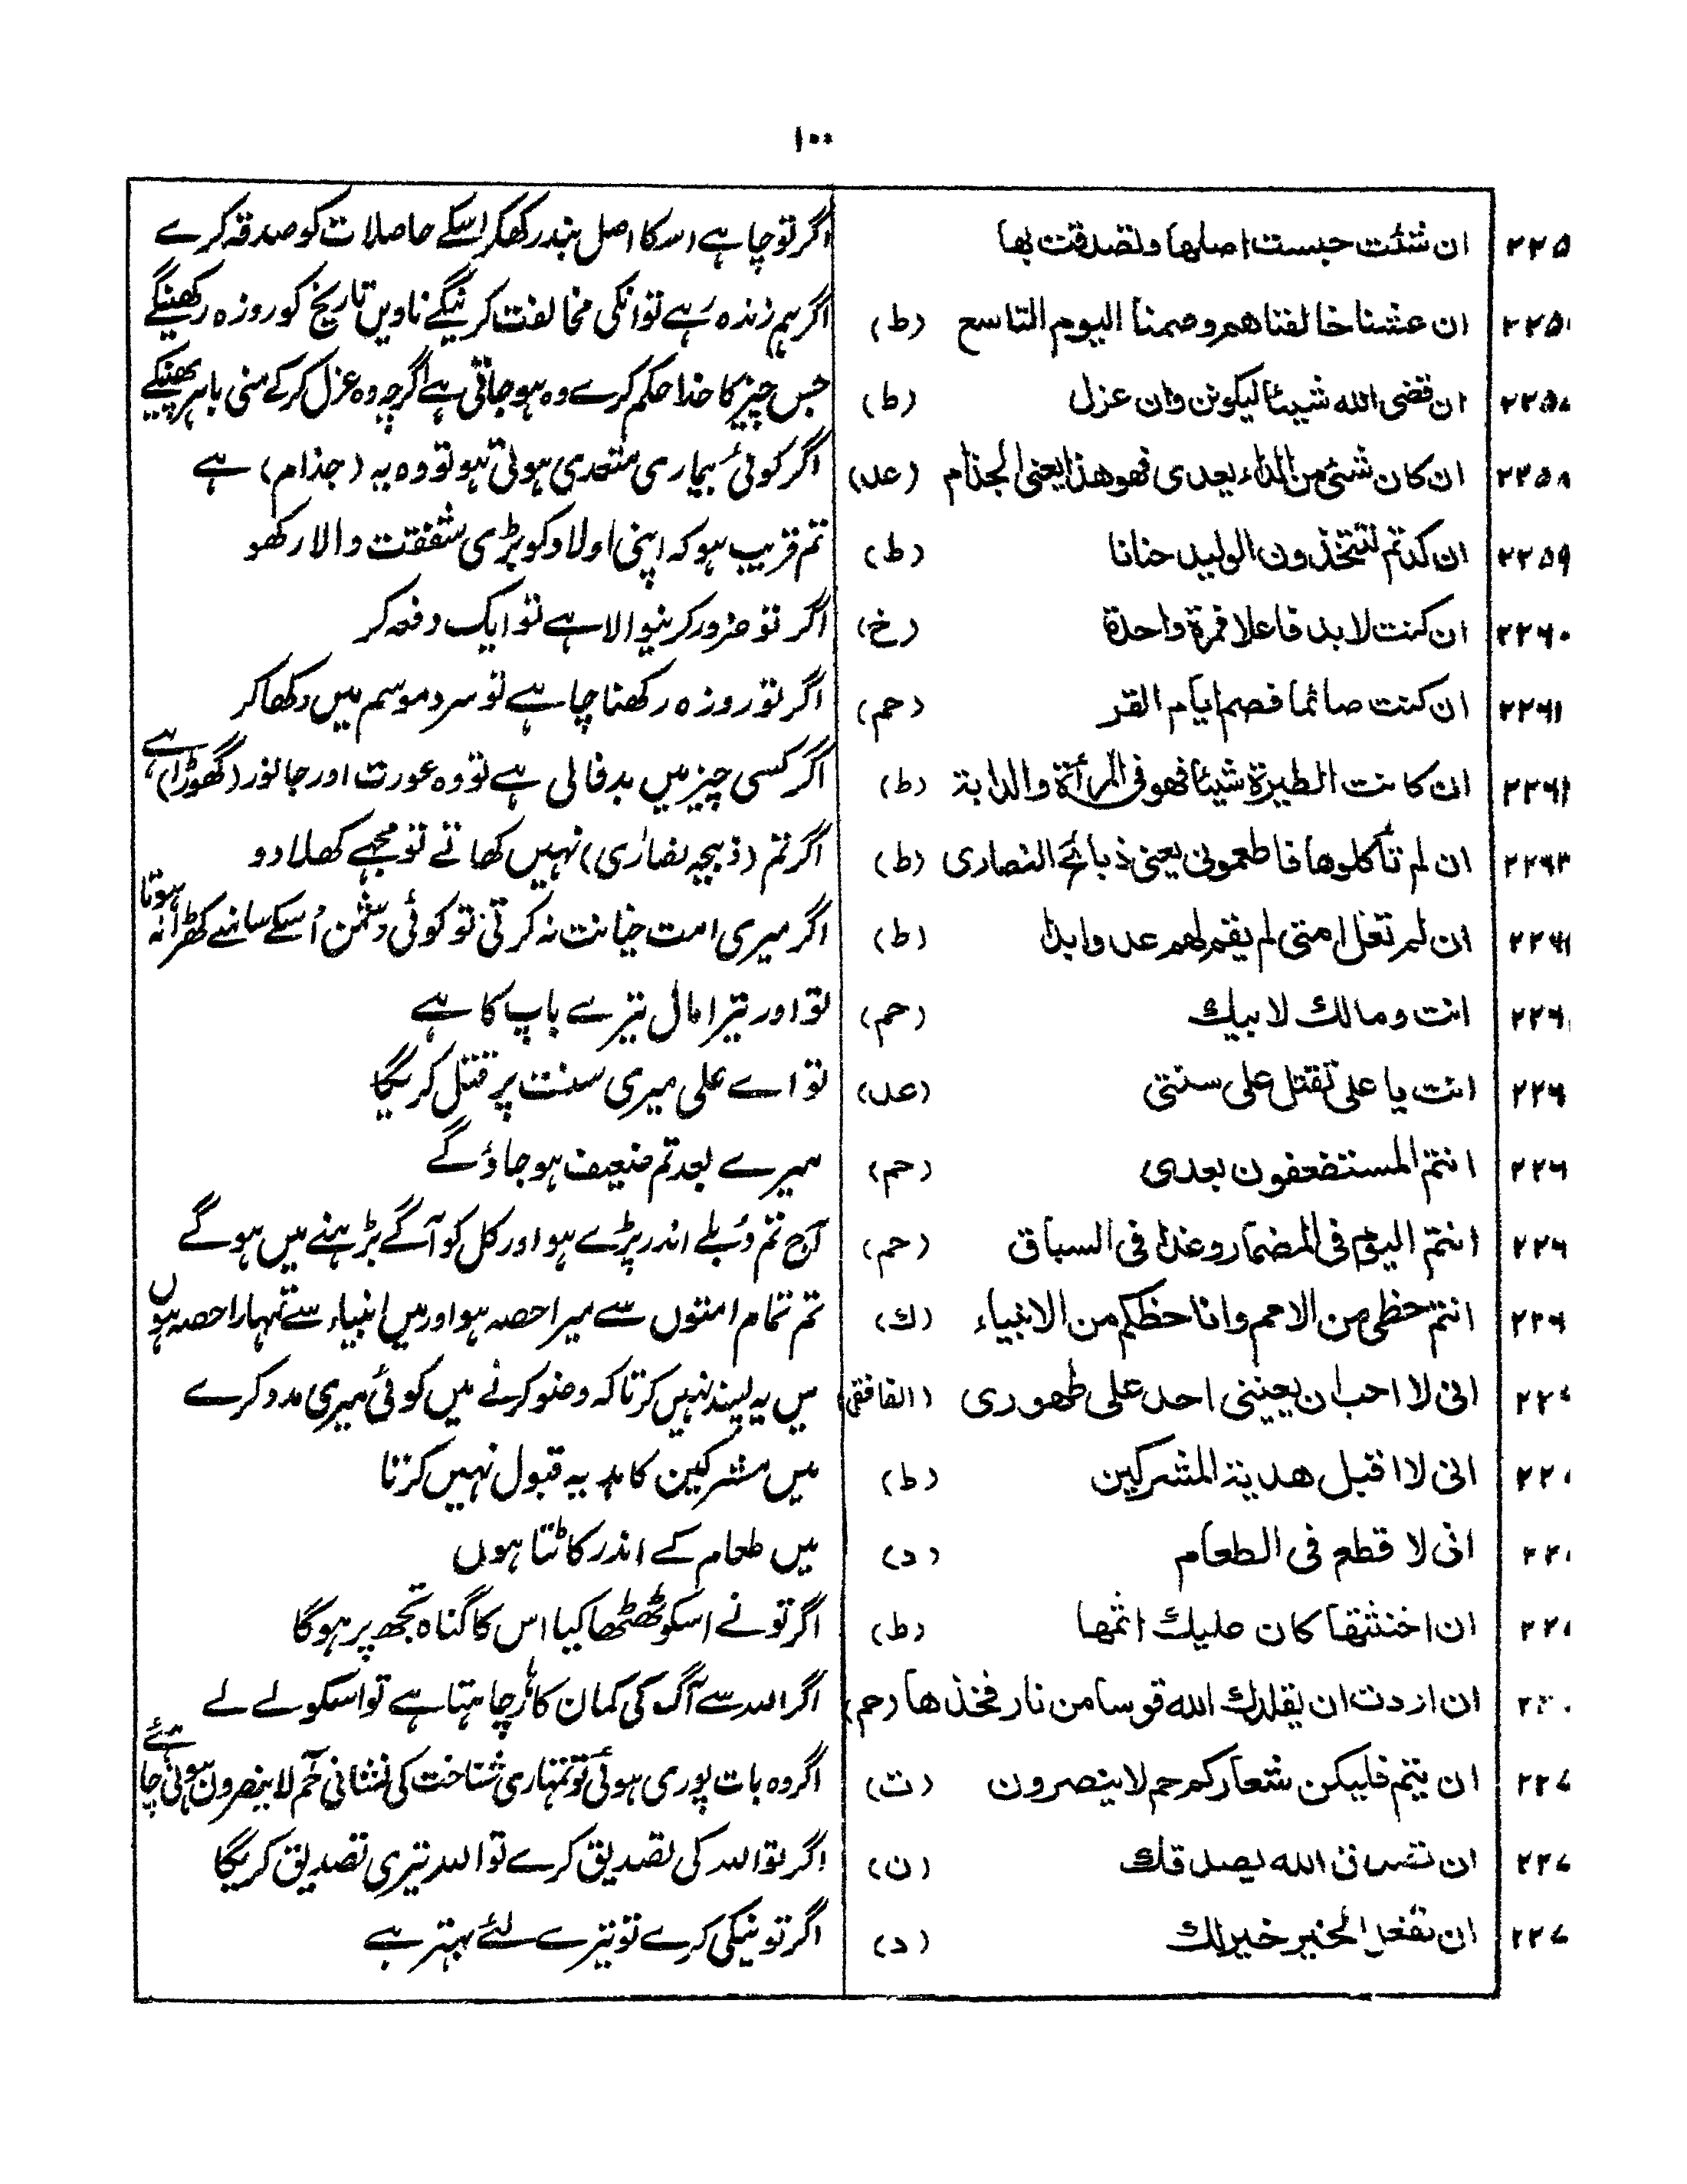 ۱۰۰
۲۲۵ ان شئت حبست اصلها وتصدقت بها اگر تو چاہے اسکا اصل بند رکھکر اسکے حاصلات کو صدقہ کرے
۲۲۵ ان عشنا خالفناهم وصمنا اليوم التاسع (ط) اگر ہم زندہ رہے تو انکی مخالفت کرینگے ناویں تاریخ کو روزہ رکھینگے
۲۲۵ ان قضى الله شيئا ليكونن وان عزل (ط) جس چیز کا خدا حکم کرے وہ ہو جاتی ہے اگرچہ وہ عزل کرکے منی باہر پھینکے
۲۲۵۸ ان كان شئ من الداء يعدى فهو هذا يعنى الجذام (عد) اگر کوئی بیماری متعدی ہوتی ہو تو وہ یہ (جذام) ہے
۲۲۵۹ ان كدتم لتتخذون الوليد حنانا (ط) تم قریب ہو کہ اپنی اولاد کو بڑی شفقت والا رکھو
۲۲۶۰ ان كنت لا بد فاعلا فمرة واحدة (خ) اگر تو ضرور کرنیوالا ہے تو ایک دفعہ کر
۲۲۶۱ ان كنت صائما فصم ايام القر (حم) اگر تو روزہ رکھنا چاہے تو سرد موسم میں رکھا کر
۲۲۶ ان كانت الطيرة شيئا فهو فى المرأة والدابة (ط) اگر کسی چیز میں بدفالی ہے تو وہ عورت اور جانور (گھوڑا) ہے
۲۲۶۳ ان لم تأكلوها فاطعمونى يعنى ذبائح النصارى (ط) اگر تم (ذبیحہ نصاریٰ) نہیں کھاتے تو مجھے کھلا دو
۲۲۶ ان لم تغل امتى لم يقم لهم عدو ابدا (ط) اگر میری امت خیانت نہ کرتی تو کوئی دشمن اُسکے سامنے کھڑا نہ ہوتا
۲۲۶ انت ومالك لابيك (حم) تو اور تیرا مال تیرے باپ کا ہے
۲۲۶ انت يا على تقتل على سنتى (عد) تو اے علی میری سنت پر قتل کریگا
۲۲۶ انتم المستضعفون بعدى (حم) میرے بعد تم ضعیف ہو جاؤ گے
۲۲۶ انتم اليوم فى المضمار وغدا فى السباق (حم) آج تم دُبلے اندر پڑے ہو اور کل کو آگے بڑہنے میں ہو گے
۲۲۶ انتم حظى من الامم وانا حظكم من الانبياء (ك) تم تمام امتوں سے میرا حصہ ہو اور میں انبیاء سے تمہارا حصہ ہوں
۲۲۷ انى لا احب ان يعيننى احد على طهورى (الفافقى) میں یہ پسند نہیں کرتا کہ وضو کرنے میں کوئی میری مدد کرے
۲۲ انى لا اقبل هدية المشركين (ط) میں مشرکین کا ہدیہ قبول نہیں کرتا
۲۲ انى لا قطع فى الطعام (د) میں طعام کے اندر کاٹتا ہوں
۲۲ ان اخنثتها كان عليك اثمها (ط) اگر تو نے اسکو ٹھٹھا کیا اس کا گناہ تجھ پر ہوگا
۲۲ ان اردت ان يقلدك الله قوسا من نار فخذها (حم) اگر اللہ سے آگ کی کمان کا ہار چاہتا ہے تو اسکو لے لے
۲۲۷ ان يتم فليكن شعاركم حم لا ينصرون (ت) اگر وہ بات پوری ہوئی تو تمہاری شناخت کی نشانی حٰم لا ینصرون ہونی چاہئے
۲۲۷ ان تصدق الله يصدقك (ن) اگر تو اللہ کی تصدیق کرے تو اللہ تیری تصدیق کریگا
۲۲۷ ان تفعل الخير خير لك (د) اگر تو نیکی کرے تو تیرے لئے بہتر ہے